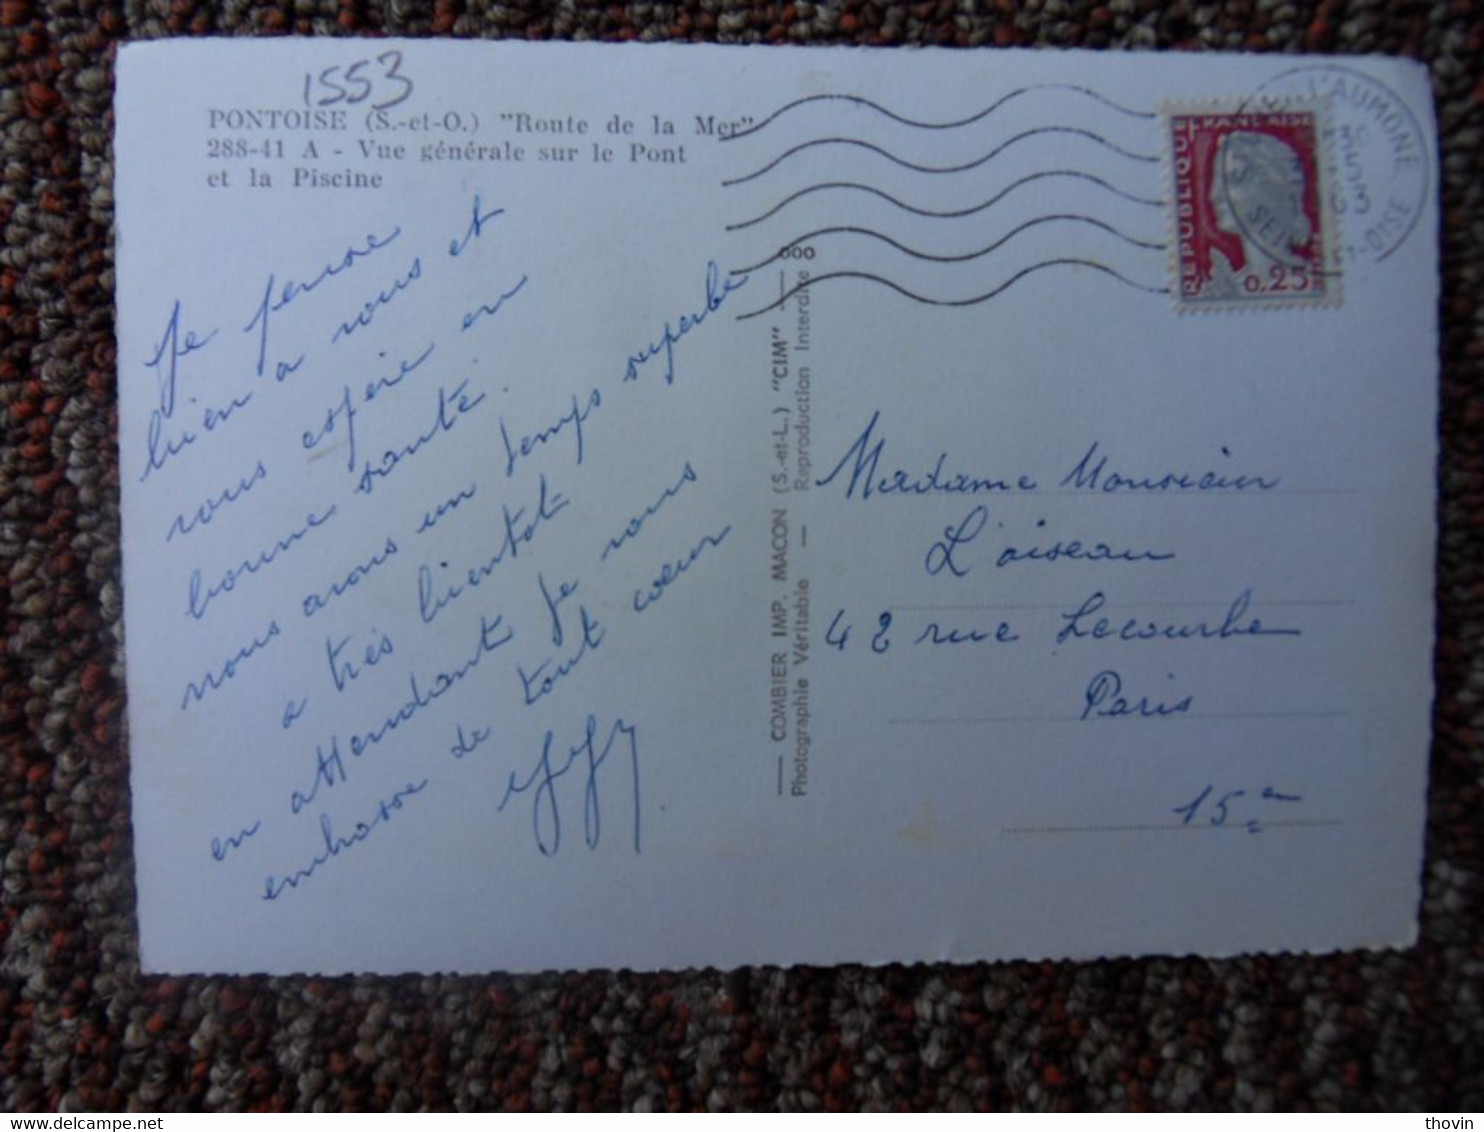 1553
PONTOISE (S.-et-O.) "Route de la Mer"
288-41 A - Vue générale sur le Pont
et la Piscine
Je pense
bien a vous et
vous espère en
bonne santé.
nous avons un temps superbe
a très bientot
en attendant je vous
embrasse de tout coeur
COMBIER IMP. MACON (S.-et-L.) "CIM"
Photographie Véritable — Reproduction Interdite
000
REPUBLIQUE FRANÇAISE
0.25
L'AUMONE
OISE
Madame
L'oiseau
42 rue Lecourbe
Paris
15en
thovin